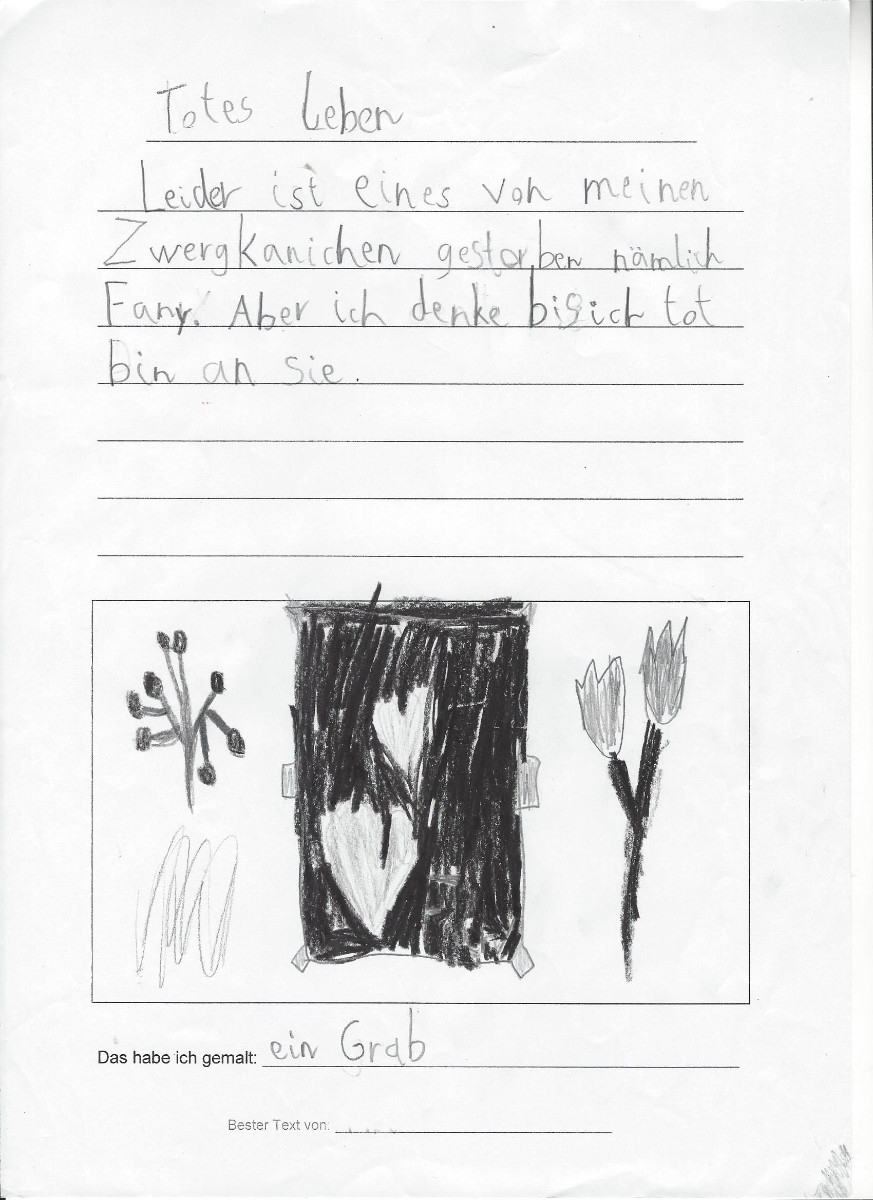 Totes Leben
Leider ist eines von meinen
Zwergkanichen gestorben nämlich
Fany. Aber ich denke bis ich tot
bin an sie.
Das habe ich gemalt: ein Grab
Bester Text von: